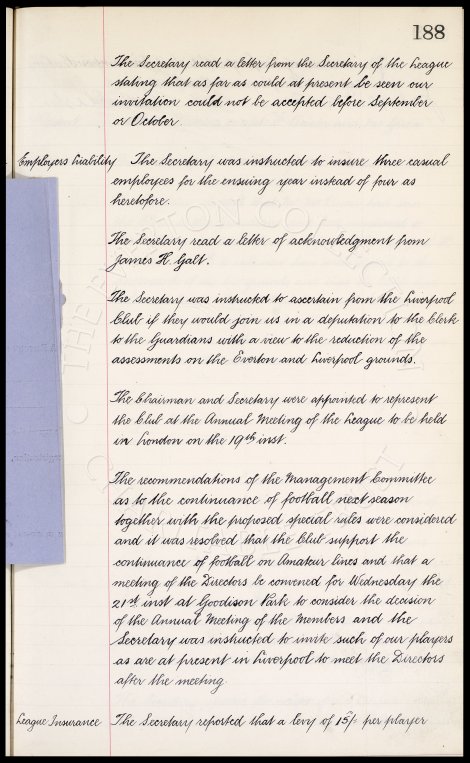 188
The Secretary read a letter from the Secretary of the League
stating that as far as could at present be seen our
invitation could not be accepted before September
or October
Employers Liability The Secretary was instructed to insure three casual
employees for the ensuing year instead of four as
heretofore.
The Secretary read a letter of acknowledgment from
James H. Galt.
The Secretary was instructed to ascertain from the Liverpool
Club if they would join us in a deputation to the Clerk
to the Guardians with a view to the reduction of the
assessments on the Everton and Liverpool grounds.
The Chairman and Secretary were appointed to represent
the Club at the Annual Meeting of the League to be held
in London on the 19th inst.
The recommendations of the Management Committee
as to the continuance of football next season
together with the proposed special rules were considered
and it was resolved that the Club support the
continuance of football on Amateur lines and that a
meeting of the Directors be convened for Wednesday the
21st inst at Goodison Park to consider the decision
of the Annual Meeting of the Members and the
Secretary was instructed to invite such of our players
as are at present in Liverpool to meet the Directors
after the meeting.
League Insurance The Secretary reported that a levy of 15/- per player